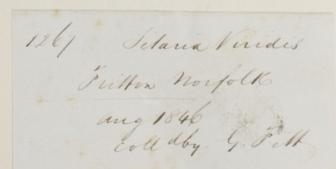 1261 Setaria Viridis
Fritton Norfolk
aug 1846
coll d by G. Fitt